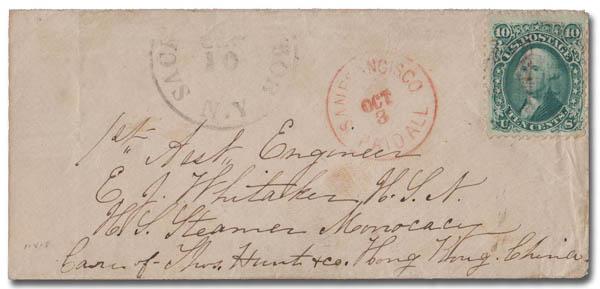 SACK HARBOR
10
N.Y
SAN FRANCISCO
OCT
3
PAID ALL
10 U.S. POSTAGE 10
TEN CENTS
U S
1st Asst Engineer
E. J. Whitaker, U.S.N.
U.S. Steamer Monocacy
Care of Thos. Hunt & co. Hong Kong. China